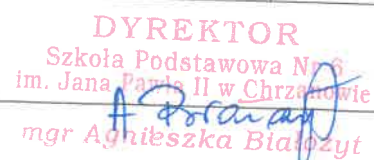 DYREKTOR
Szkoła Podstawowa Nr 6
im. Jana Pawła II w Chrzanowie
mgr Agnieszka Białożyt